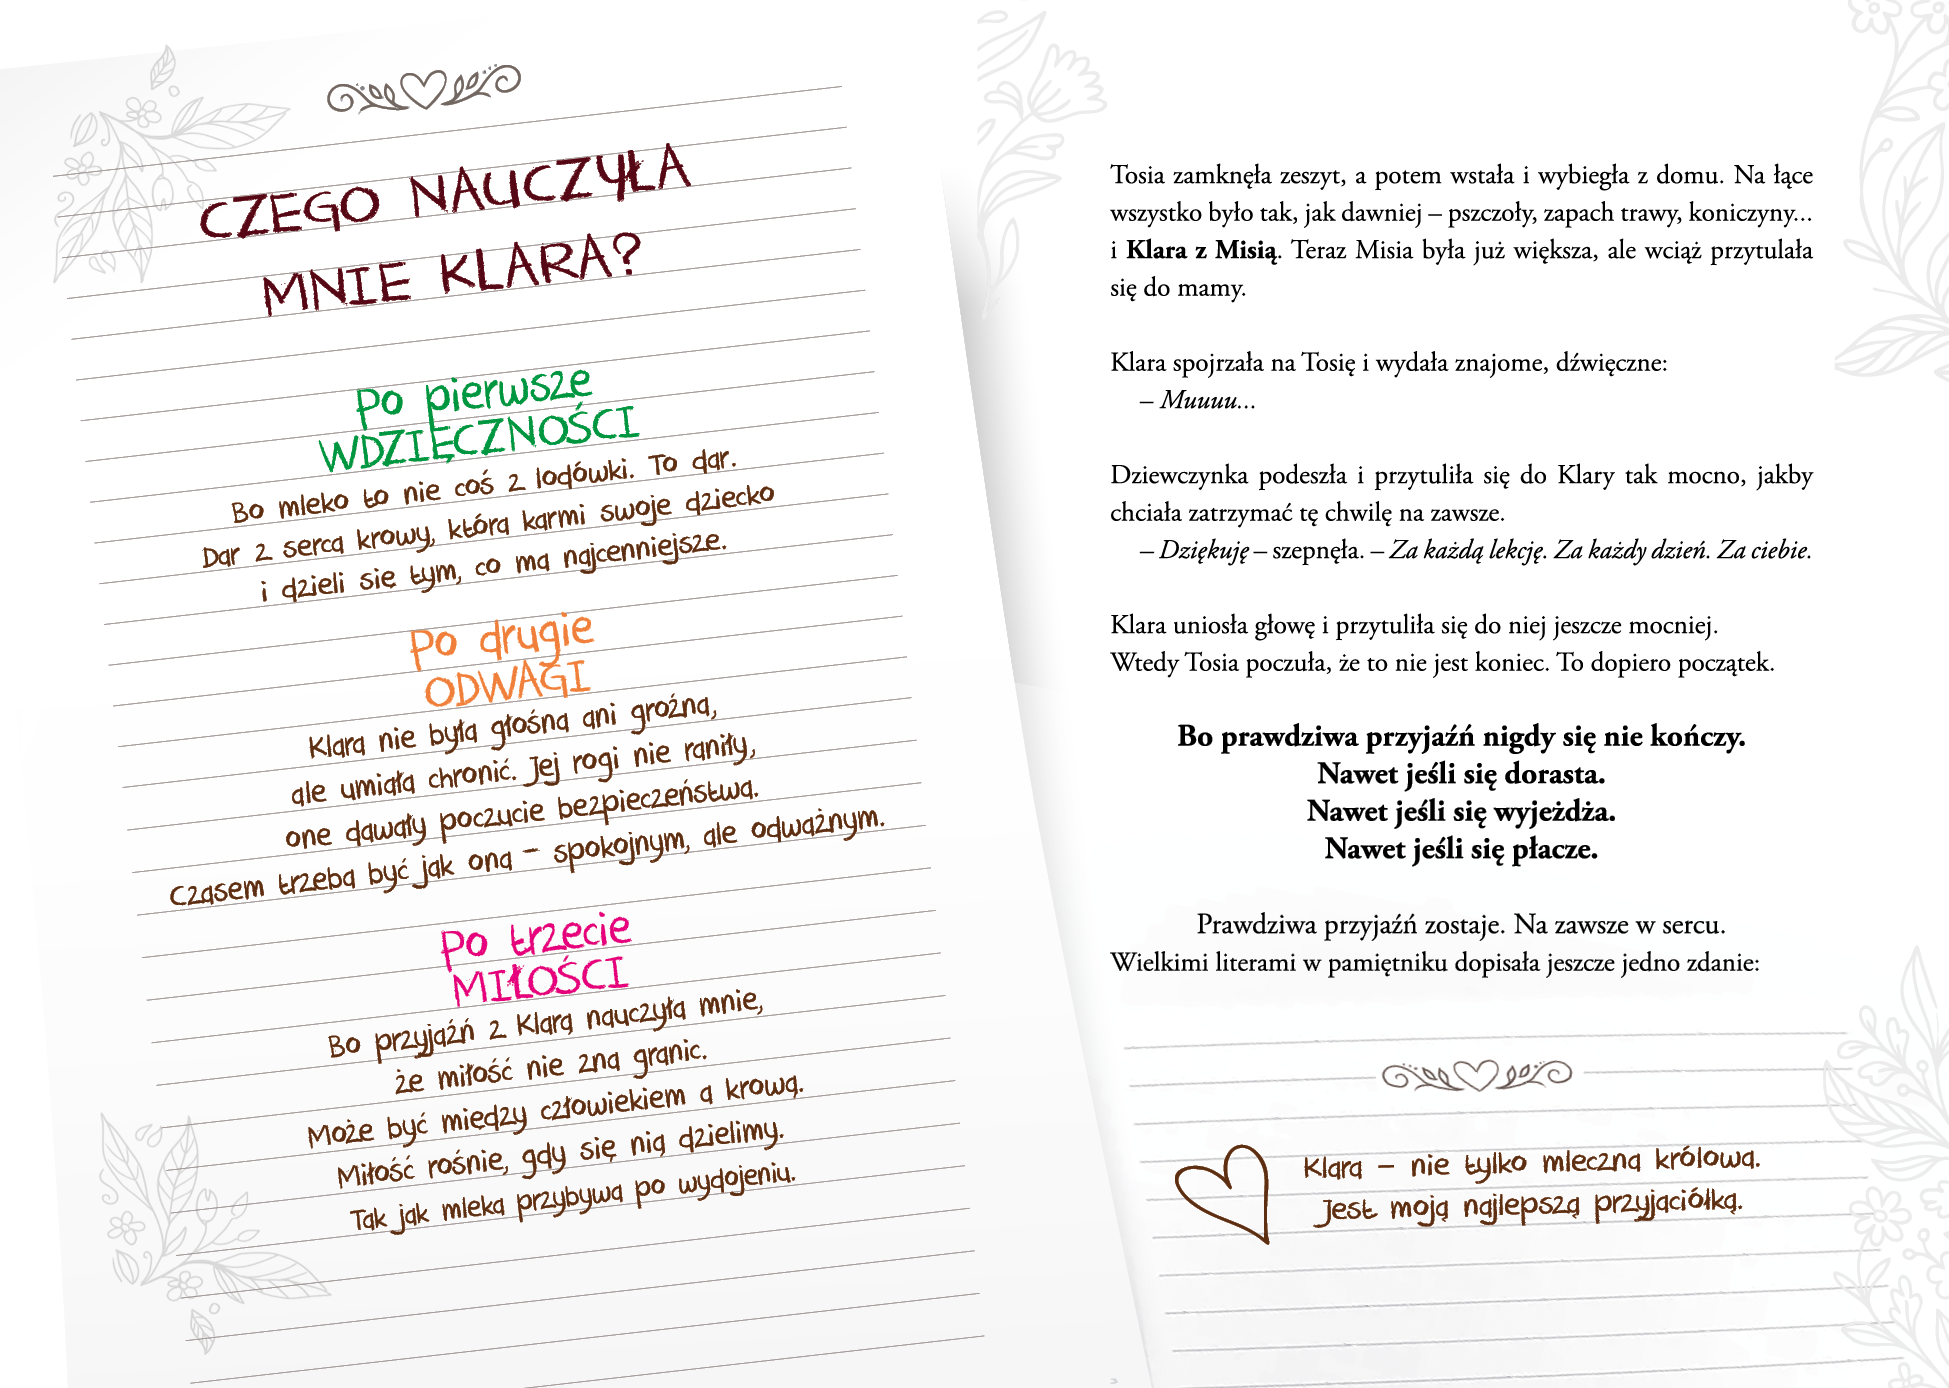 CZEGO NAUCZYŁA
MNIE KLARA?
Po pierwsze
WDZIĘCZNOŚCI
Bo mleko to nie coś z lodówki. To dar.
Dar z serca krowy, która karmi swoje dziecko
i dzieli się tym, co ma najcenniejsze.
Po drugie
ODWAGI
Klara nie była głośna ani groźna,
ale umiała chronić. Jej rogi nie raniły,
one dawały poczucie bezpieczeństwa.
Czasem trzeba być jak ona – spokojnym, ale odważnym.
Po trzecie
MIŁOŚCI
Bo przyjaźń z Klarą nauczyła mnie,
że miłość nie zna granic.
Może być między człowiekiem a krową.
Miłość rośnie, gdy się nią dzielimy.
Tak jak mleka przybywa po wydojeniu.
Tosia zamknęła zeszyt, a potem wstała i wybiegła z domu. Na łące
wszystko było tak, jak dawniej – pszczoły, zapach trawy, koniczyny...
i Klara z Misią. Teraz Misia była już większa, ale wciąż przytulała
się do mamy.
Klara spojrzała na Tosię i wydała znajome, dźwięczne:
– Muuuu...
Dziewczynka podeszła i przytuliła się do Klary tak mocno, jakby
chciała zatrzymać tę chwilę na zawsze.
– Dziękuję – szepnęła. – Za każdą lekcję. Za każdy dzień. Za ciebie.
Klara uniosła głowę i przytuliła się do niej jeszcze mocniej.
Wtedy Tosia poczuła, że to nie jest koniec. To dopiero początek.
Bo prawdziwa przyjaźń nigdy się nie kończy.
Nawet jeśli się dorasta.
Nawet jeśli się wyjeżdża.
Nawet jeśli się płacze.
Prawdziwa przyjaźń zostaje. Na zawsze w sercu.
Wielkimi literami w pamiętniku dopisała jeszcze jedno zdanie:
Klara – nie tylko mleczna królowa.
Jest moją najlepszą przyjaciółką.